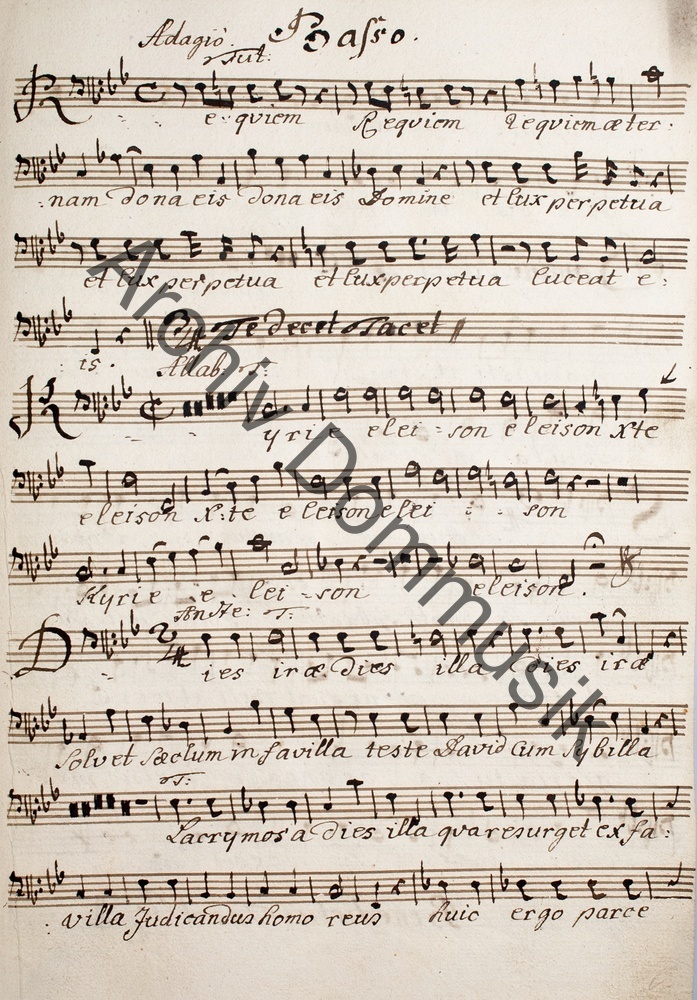 Adagio. Basso.
Tut:
Requiem Requiem requiem æter:
:nam dona eis dona eis Domine et lux perpetua
et lux perpetua et lux perpetua luceat e:
Te decet Tacet
is.
Allab: T:
Kyrie elei - son eleison Xte
eleison X:te eleison elei : - son
Kyrie e lei - son eleison.
Andte: T:
2/4
Dies iræ dies illa dies iræ
Solvet Sæclum in favilla teste David cum Sybilla
T:
Lacrymosa dies illa qua resurget ex fa:
villa Judicandus homo reus huic ergo parce
Archiv Dommusik